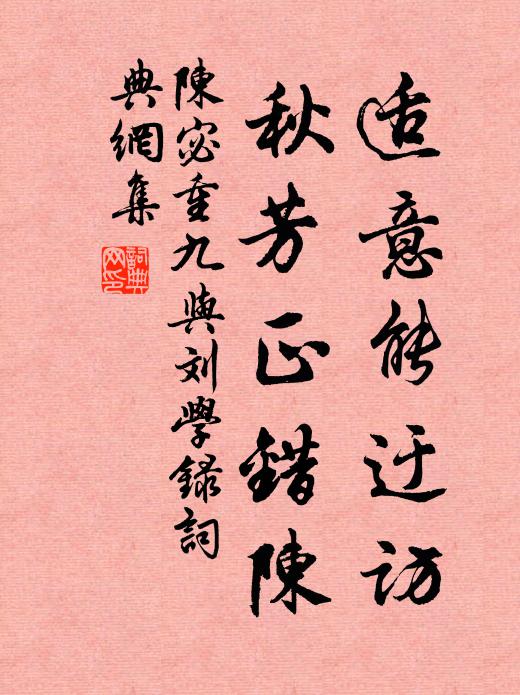 适意能迂访
秋芳正錯陳
陳宓重九與刘學録詞
典網集
詞典
网印